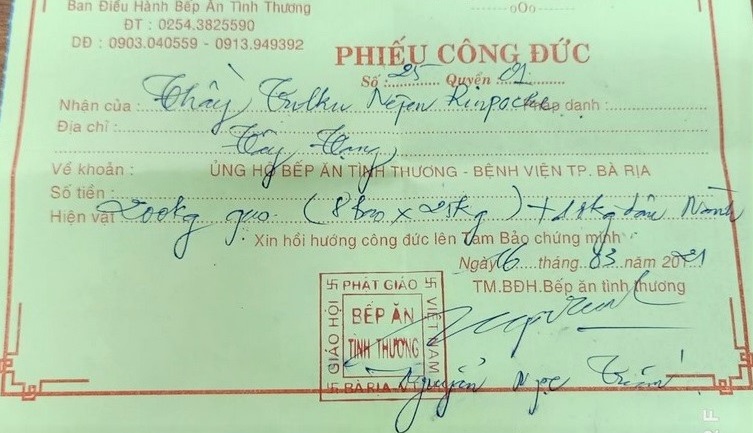 Ban Điều Hành Bếp Ăn Tình Thương
ĐT : 0254.3825590
DĐ : 0903.040559 - 0913.949392
oOo
PHIẾU CÔNG ĐỨC
Số : 25 Quyển : 01
Nhân của : Thầy Tulku Neten Rinpoche Pháp danh :
Địa chỉ : Tây Tạng
Về khoản : ỦNG HỘ BẾP ĂN TÌNH THƯƠNG - BỆNH VIỆN TP. BÀ RỊA
Số tiền :
Hiện vật 200kg gạo (8 bao x 25kg) + 18kg dầu Nành
Xin hồi hướng công đức lên Tam Bảo chứng minh
Ngày 16 tháng 03 năm 2021
TM.BĐH.Bếp ăn tình thương
PHẬT GIÁO
GIÁO HỘI
VIỆT NAM
BẾP ĂN
TÌNH THƯƠNG
BÀ RỊA
Nguyễn Ngọc